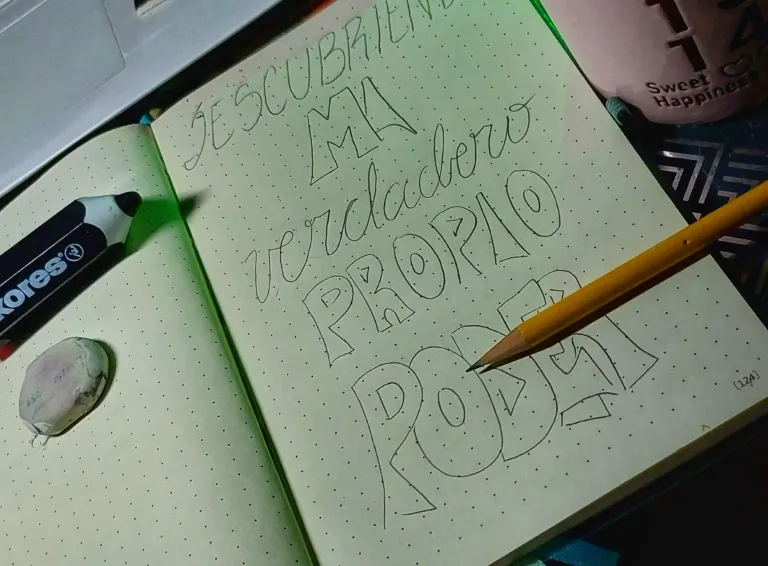 DESCUBRIEN
MI
verdadero
PROPIO
PODER
(124)
kores
Sweet
Happiness